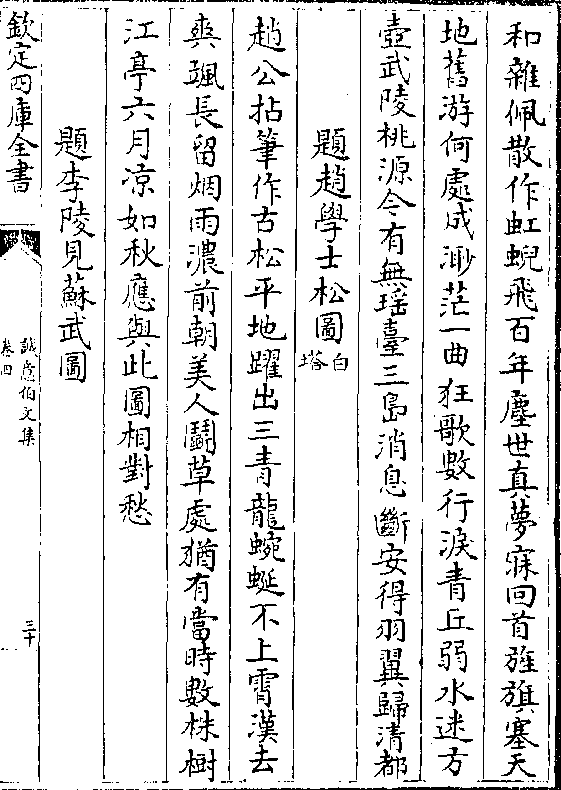 和雜佩散作虹蜺飛百年塵世真夢寐回首旌旗塞天
地舊游何處成渺茫一曲狂歌數行淚青丘弱水迷方
壺武陵桃源今有無瑶臺三島消息斷安得羽翼歸清都
題趙學士松圖白塔
趙公拈筆作古松平地躍出三青龍蜿蜒不上霄漢去
爽颯長留烟雨濃前朝美人鬬草處猶有當時數株樹
江亭六月凉如秋應與此圖相對愁
題李陵見蘇武圖
欽定四庫全書
誠意伯文集
卷四
三十